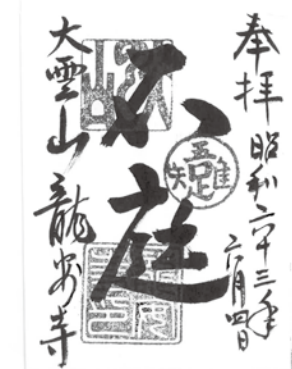 奉拝
昭和六十三年
六月四日
石庭
吾唯足知
大雲山
龍安寺